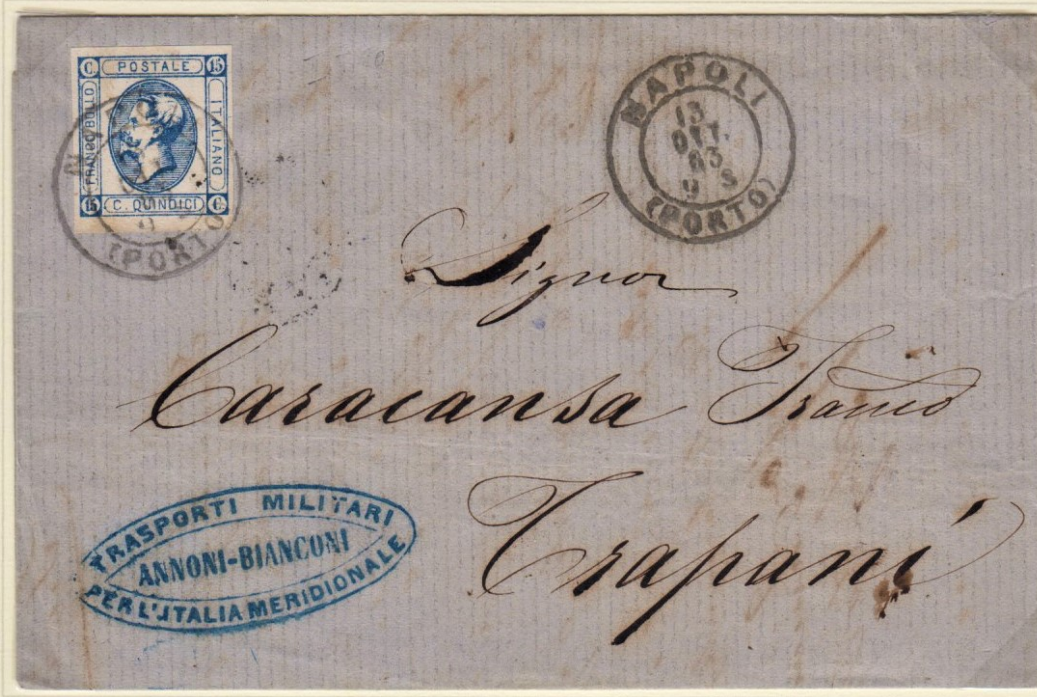 C. POSTALE 15
FRANCO BOLLO
ITALIANO
15 C. QUINDICI C.
(PORTO
NAPOLI
13
OTT.
63
9 S
(PORTO)
Signor
Caracausa
Trapani
TRASPORTI MILITARI
ANNONI-BIANCONI
PER L'ITALIA MERIDIONALE